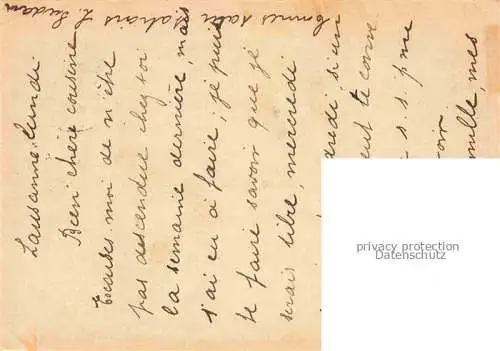 Lausanne. lundi
Bien chère cousine
Excuses moi de n'être
pas descendue chez toi
la semaine dernière, mais
j'ai eu à faire; je puis
te faire savoir que je
serais libre, mercredi
dredi, si un
te convi
s. s. p. me
oir
mille, mes
bonnes
privacy protection
Datenschutz